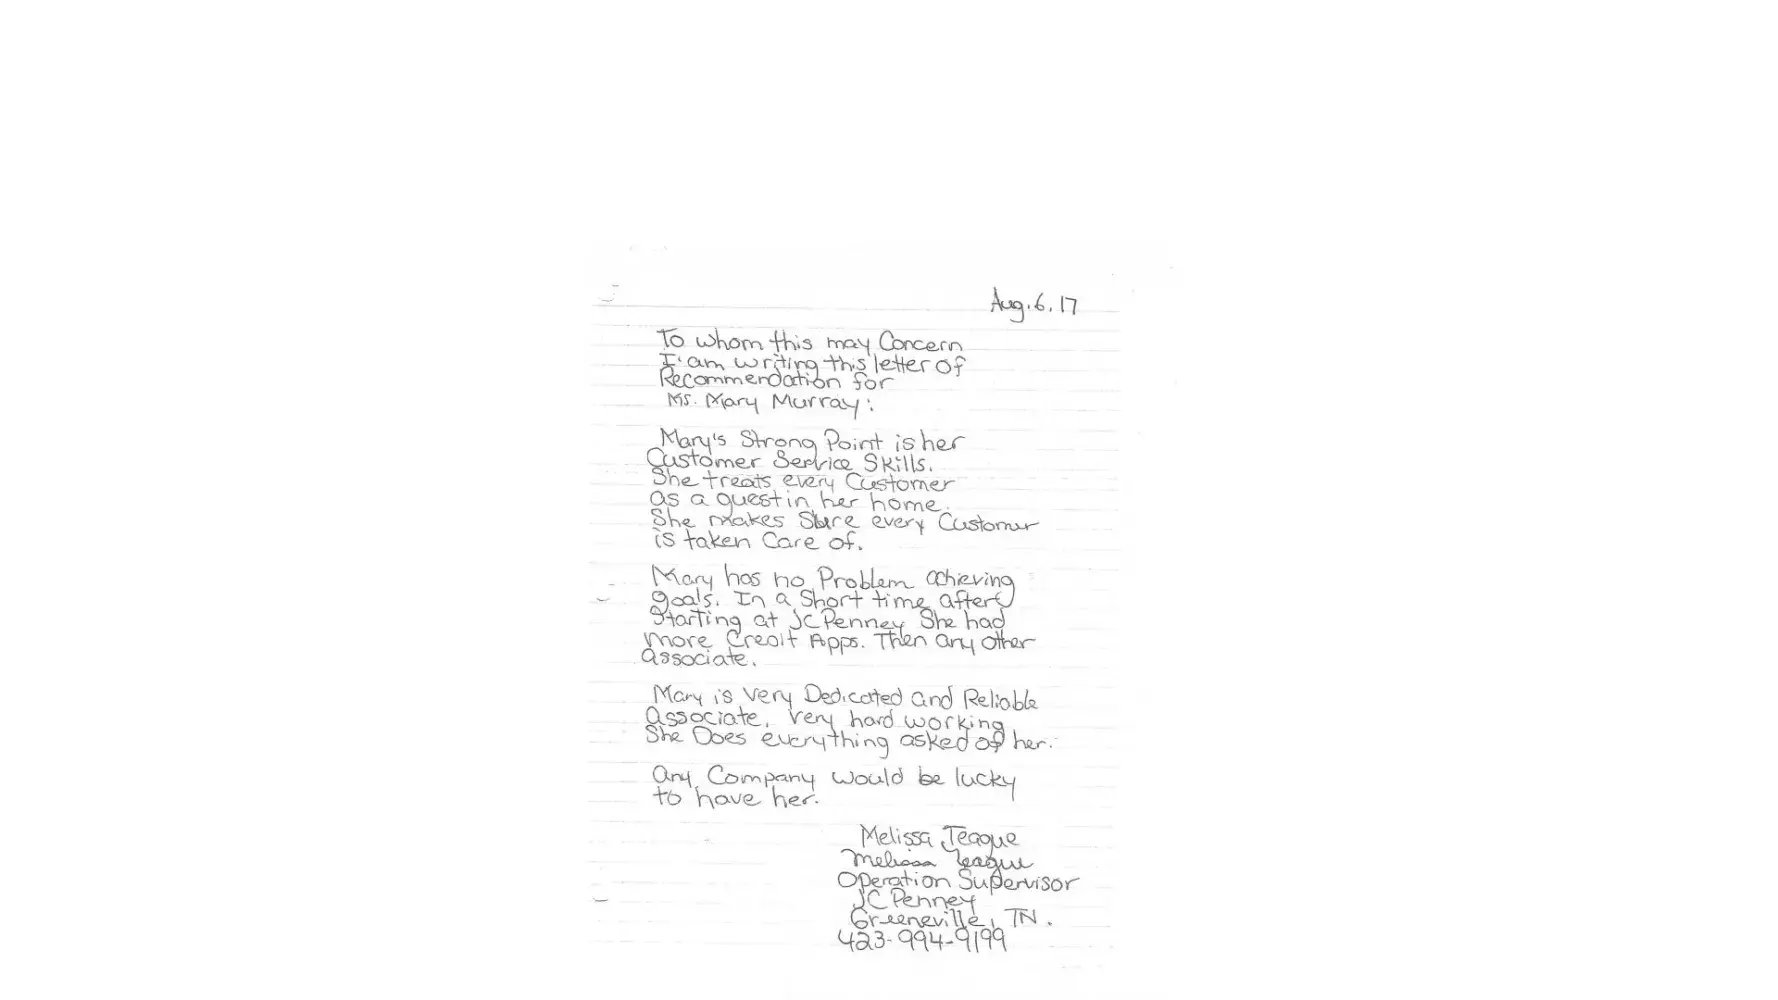 Aug. 6. 17
To whom this may Concern
I am writing this letter of
Recommendation for
Ms. Mary Murray:
Mary's Strong Point is her
Customer Service Skills.
She treats every Customer
as a guest in her home.
She makes Sure every Customer
is taken Care of.
Mary has no Problem achieving
goals. In a Short time after
Starting at JCPenney She had
more Credit Apps. Then any other
associate.
Mary is Very Dedicated and Reliable
Associate. Very hard working
She Does everything asked of her.
Any Company would be lucky
to have her.
Melissa Teague
Melissa Teague
Operation Supervisor
JCPenney
Greeneville, TN.
423-994-9199